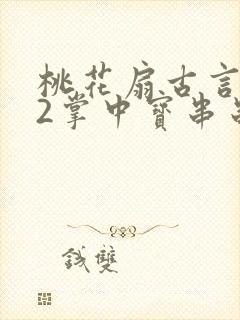 桃花扇古言
2掌中寶串
錢雙